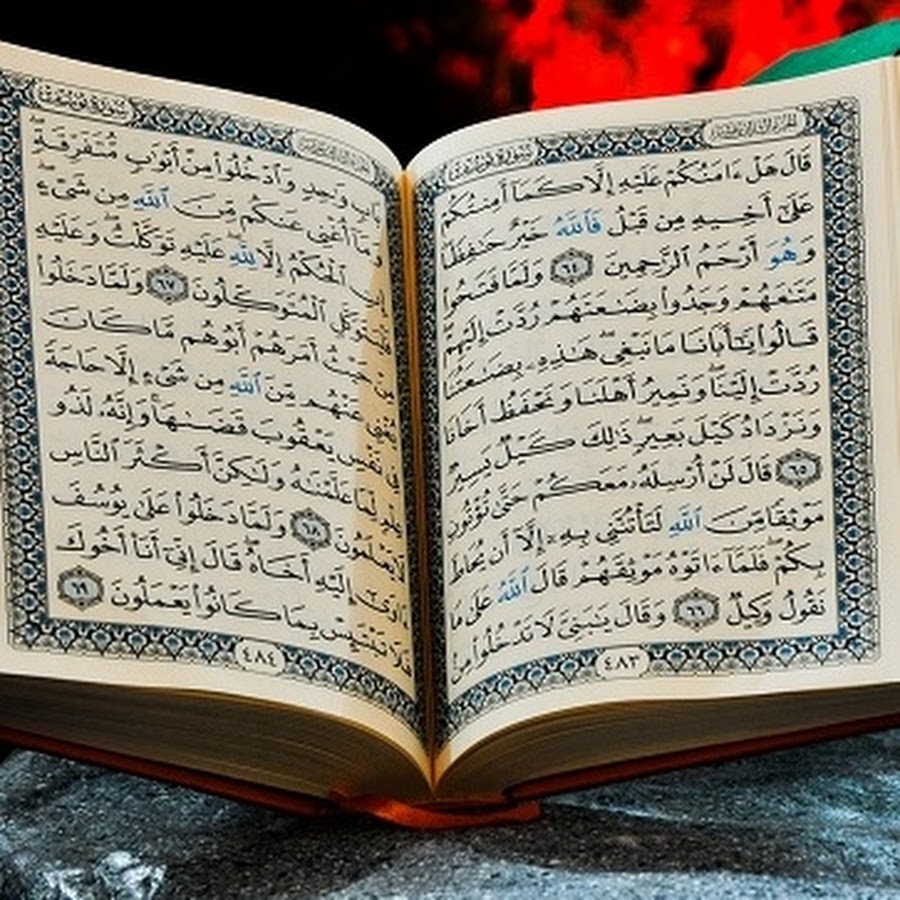 سورة يوسف
قَالَ هَلْ ءَامَنُكُمْ عَلَيْهِ إِلَّا كَمَآ أَمِنتُكُمْ
عَلَىٰٓ أَخِيهِ مِن قَبْلُ فَٱللَّهُ خَيْرٌ حَٰفِظًا
وَهُوَ أَرْحَمُ ٱلرَّٰحِمِينَ ٦٤ وَلَمَّا فَتَحُوا۟
مَتَٰعَهُمْ وَجَدُوا۟ بِضَٰعَتَهُمْ رُدَّتْ إِلَيْهِمْ
قَالُوا۟ يَٰٓأَبَانَا مَا نَبْغِى هَٰذِهِۦ بِضَٰعَتُنَا
رُدَّتْ إِلَيْنَا وَنَمِيرُ أَهْلَنَا وَنَحْفَظُ أَخَانَا
وَنَزْدَادُ كَيْلَ بَعِيرٍ ذَٰلِكَ كَيْلٌ يَسِيرٌ
٦٥ قَالَ لَنْ أُرْسِلَهُۥ مَعَكُمْ حَتَّىٰ تُؤْتُونِ
مَوْثِقًا مِّنَ ٱللَّهِ لَتَأْتُنَّنِى بِهِۦٓ إِلَّآ أَن يُحَاطَ
بِكُمْ فَلَمَّآ ءَاتَوْهُ مَوْثِقَهُمْ قَالَ ٱللَّهُ عَلَىٰ مَا
نَقُولُ وَكِيلٌ ٦٦ وَقَالَ يَٰبَنِىَّ لَا تَدْخُلُوا۟ مِنۢ
٤٨٣
سورة يوسف
بَابٍ وَٰحِدٍ وَٱدْخُلُوا۟ مِنْ أَبْوَٰبٍ مُّتَفَرِّقَةٍ
وَمَآ أُغْنِى عَنكُم مِّنَ ٱللَّهِ مِن شَىْءٍ
إِنِ ٱلْحُكْمُ إِلَّا لِلَّهِ عَلَيْهِ تَوَكَّلْتُ وَعَلَيْهِ
فَلْيَتَوَكَّلِ ٱلْمُتَوَكِّلُونَ ٦٧ وَلَمَّا دَخَلُوا۟
مِنْ حَيْثُ أَمَرَهُمْ أَبُوهُم مَّا كَانَ
يُغْنِى عَنْهُم مِّنَ ٱللَّهِ مِن شَىْءٍ إِلَّا حَاجَةً
فِى نَفْسِ يَعْقُوبَ قَضَىٰهَا وَإِنَّهُۥ لَذُو
عِلْمٍ لِّمَا عَلَّمْنَٰهُ وَلَٰكِنَّ أَكْثَرَ ٱلنَّاسِ
لَا يَعْلَمُونَ ٦٨ وَلَمَّا دَخَلُوا۟ عَلَىٰ يُوسُفَ
ءَاوَىٰٓ إِلَيْهِ أَخَاهُ قَالَ إِنِّىٓ أَنَا۠ أَخُوكَ
فَلَا تَبْتَئِسْ بِمَا كَانُوا۟ يَعْمَلُونَ ٦٩
٤٨٤